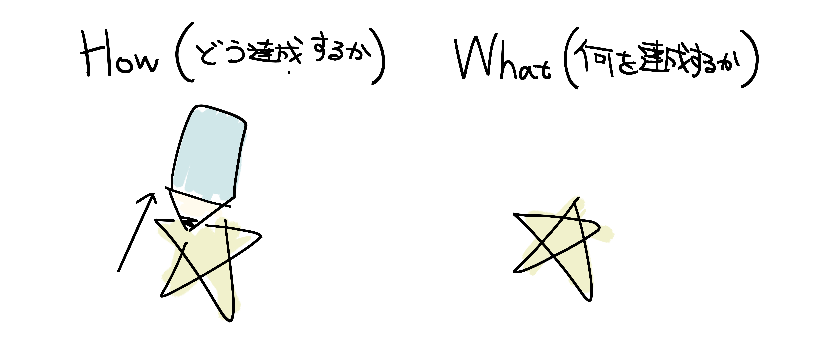 How (どう達成するか)
What (何を達成するか)